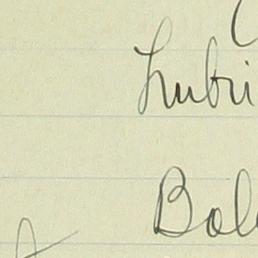 Lubri
Bol